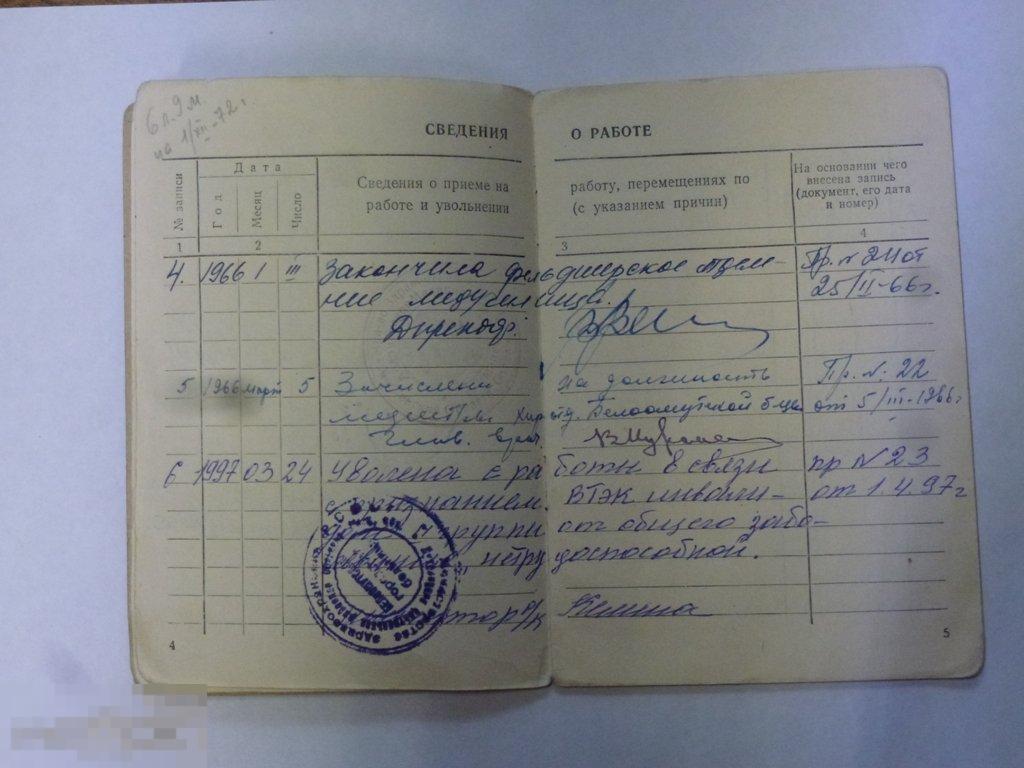 6 л. 9 м.
на 1/XII-72 г.
СВЕДЕНИЯ О РАБОТЕ
№ записи
Дата
Год
Месяц
Число
Сведения о приеме на работу, перемещениях по
работе и увольнении (с указанием причин)
На основании чего
внесена запись
(документ, его дата
и номер)
1 2 3 4
4. 1966 1 III Закончила фельдшерское отделе- Пр. № 24 от
ние медучилища. 25/II-66 г.
Директор:
5 1966 март 5 Зачислена на должность Пр. №. 22
медсестры хир. отд. Белоомутской б-цы от 5/III-1966 г
Глав. врач
6 1997 03 24 Уволена с работы в связи пр № 23
с признанием ВТЭК инвали- от 1.4.97 г
группы от общего забо-
нетрудоспособной.
4
5